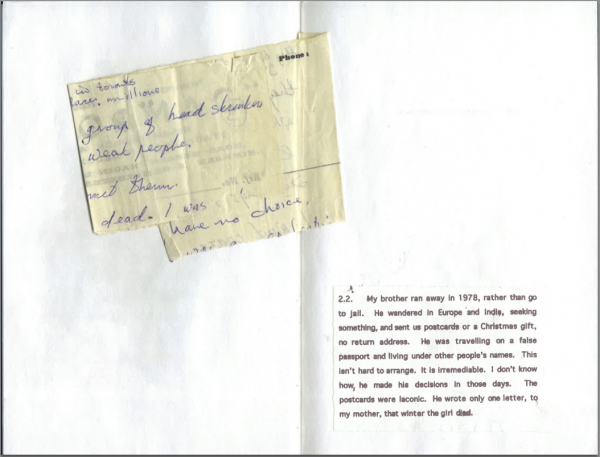 Phone:
in towards
millions
group of head shrinkers
weak people.
met them.
dead. I was
have no choice.
2.2. My brother ran away in 1978, rather than go
to jail. He wandered in Europe and India, seeking
something, and sent us postcards or a Christmas gift,
no return address. He was travelling on a false
passport and living under other people's names. This
isn't hard to arrange. It is irremediable. I don't know
how he made his decisions in those days. The
postcards were laconic. He wrote only one letter, to
my mother, that winter the girl died.